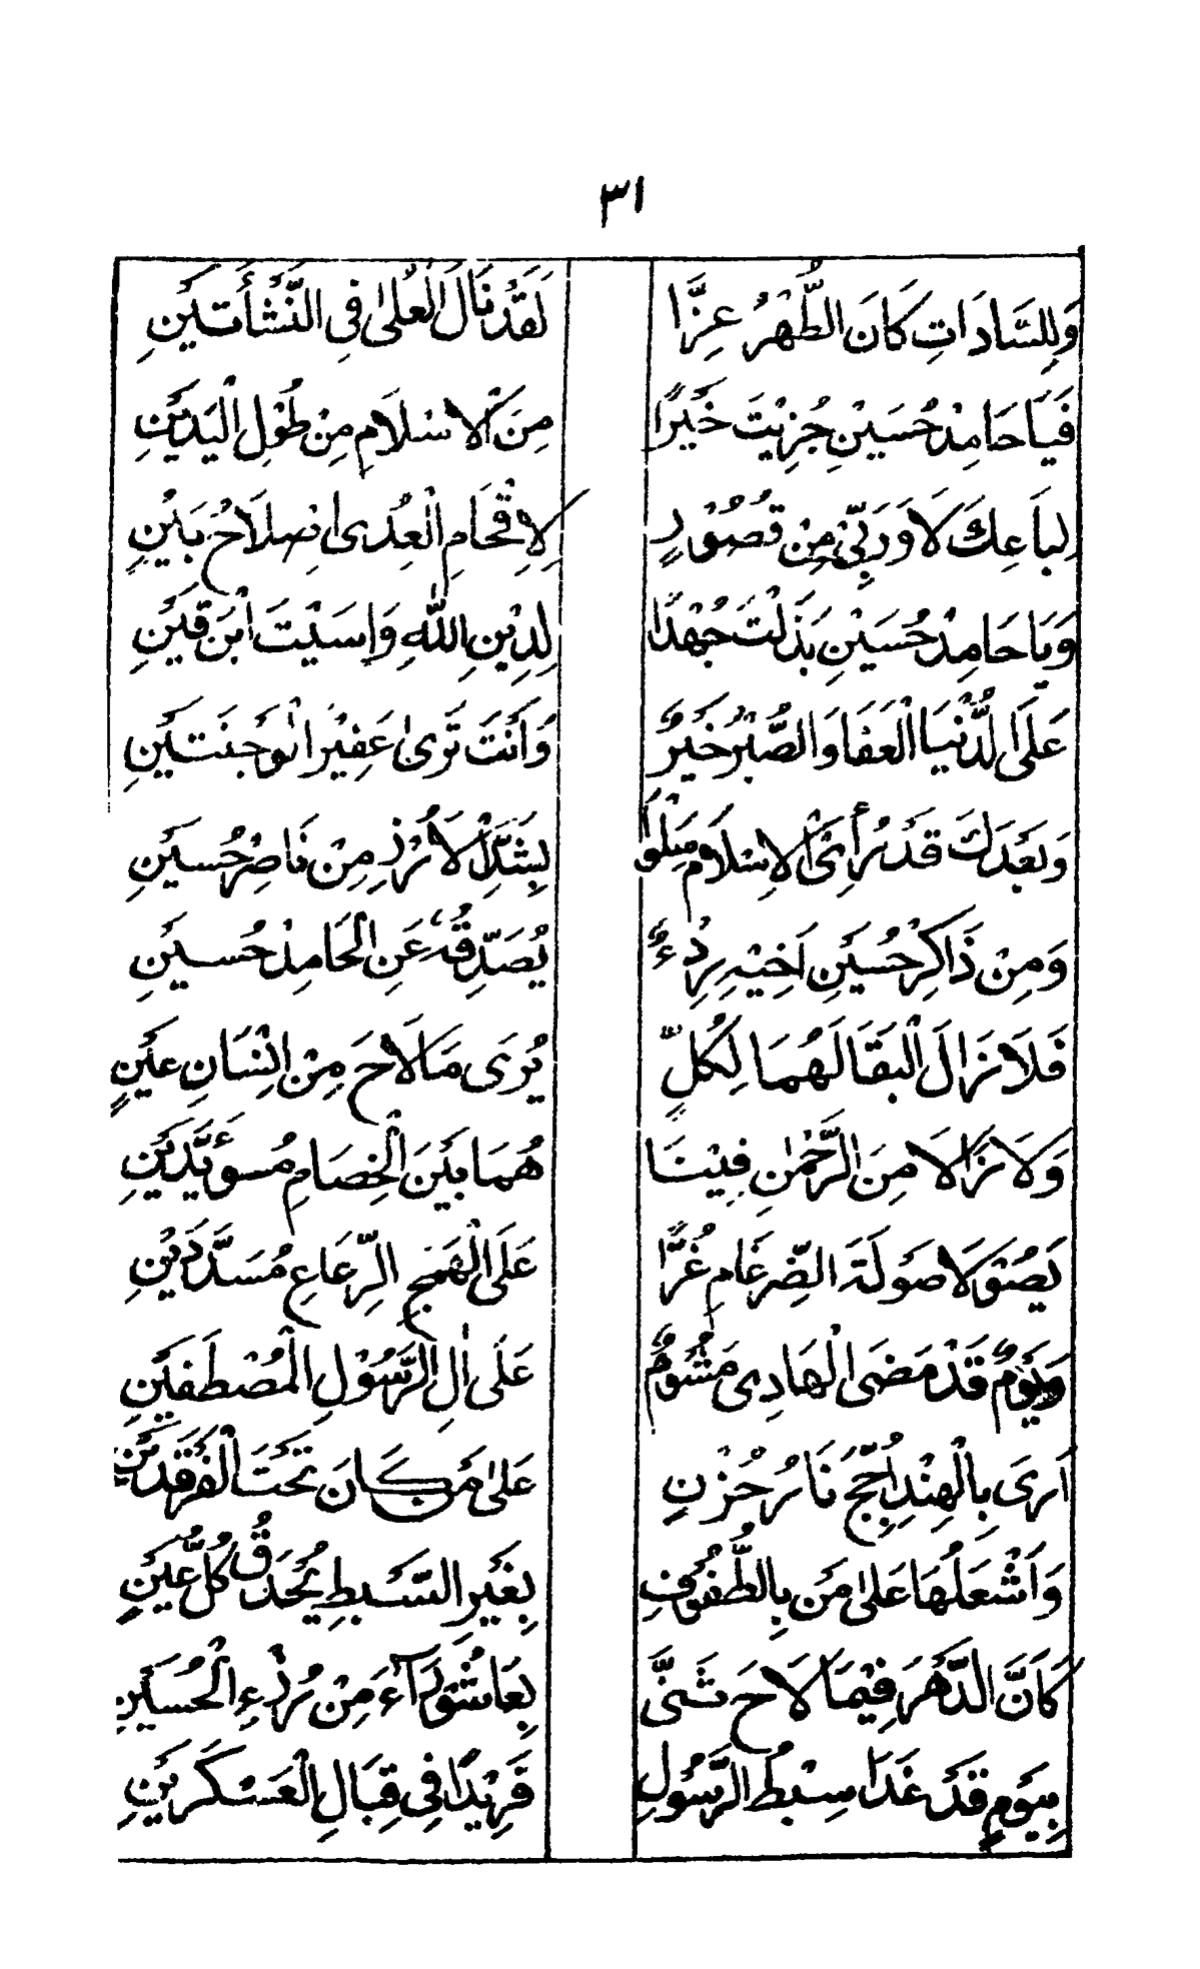 ٣١
وَلِلسَّادَاتِ كَانَ الطُّهْرُ عِزًّا لَقَدْ نَالَ الْعُلىٰ فِى النَّشْأَتَيْنِ
فَيَا حَامِدْ حُسَيْنِ جُزِيْتَ خَيْرًا مِنَ الْاِسْلَامِ مِنْ طُوْلِ الْيَدَيْنِ
لِبَاعِكَ لَا وَرَبِّىْ مِنْ قُصُوْرٍ لِاِقْحَامِ الْعِدىٰ اِصْلَاحُ بَيْنٍ
وَيَا حَامِدْ حُسَيْنِ بَذَلْتَ جُهْدًا لِدِيْنِ اللّٰهِ وَاسَيْتَ ابْنَ قَيْنِ
عَلَى الدُّنْيَا الْعَفَا وَالصَّبْرُ خَيْرٌ وَاَنْتَ تَرىٰ عَفِيْرَ الْوَجْنَتَيْنِ
وَبَعْدَكَ قَدْ رُأِىَ الْاِسْلَامُ سَلْوىٰ بِشِبْلِ الْاَرْزِ مِنْ نَاصِرْ حُسَيْنِ
وَمِنْ ذَاكِرْ حُسَيْنِ اَخِيْهِ رِدْءٌ يُصَدِّقُهُ عَنِ الْحَامِدْ حُسَيْنِ
فَلَا زَالَ الْبَقَا لَهُمَا لِكُلٍّ يُرَى مَا لَاحَ مِنْ اِنْسَانِ عَيْنٍ
وَلَا زَالَا مِنَ الرَّحْمٰنِ فِيْنَا هُمَا بَيْنَ الْخِصَامِ مُسوءَيَّدَيْنِ
يَصُوْلَا صَوْلَةَ الضِّرْغَامِ غُرًّا عَلَى الْهَمَجِ الرِّعَاعِ مُسَدَّدَيْنِ
وَيَوْمٌ قَدْ مَضَى الْهَادِى مَشُوْمٌ عَلَى اٰلِ الرَّسُوْلِ الْمُصْطَفَيْنِ
اَرىَ بِالْهِنْدِ اُجِّجَ نَارُ حُزْنٍ عَلىٰ مَنْ كَانَ تَحْتَ الْفَرْقَدَيْنِ
وَاَشْعَلُهَا عَلىٰ مَنْ بِالطُّفُوْفِ بِغَيْرِ السَّبْطِ يُحْدَقُ كُلُّ عَيْنٍ
كَاَنَّ الدَّهْرَ فِيْمَا لَاحَ ثَنَّى بِعَاشُوْرَآءَ مِنْ رُزْءِ الْحُسَيْنِ
بِيَوْمٍ قَدْ غَدَا سِبْطُ الرَّسُوْلِ فَرِيْدًا فِى قِبَالِ الْعَسْكَرَيْنِ